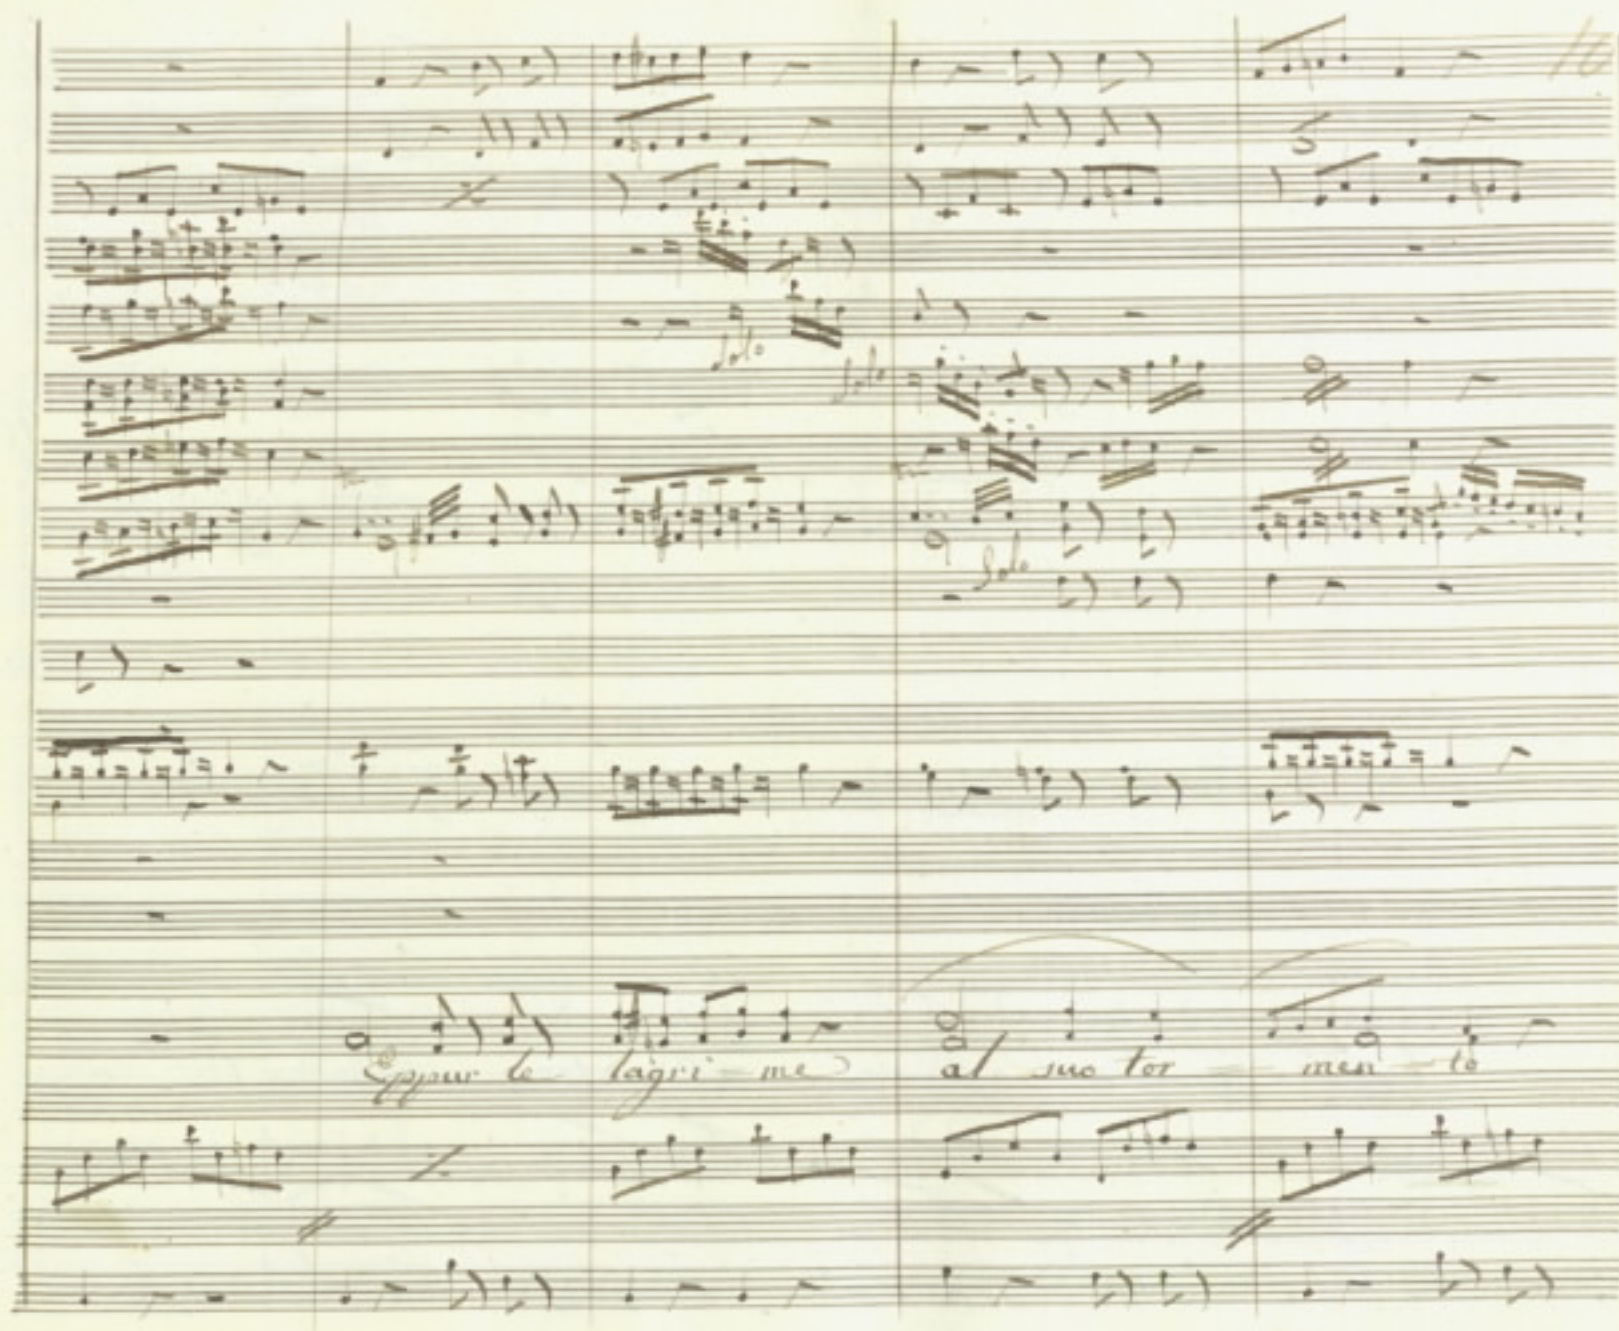 Solo
Solo
Solo
Eppur le lagri - me al suo tor - men - to